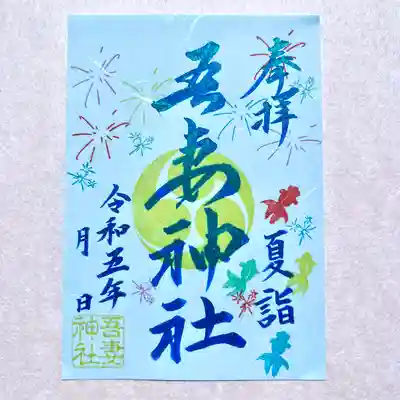 奉拝
夏詣
吾妻神社
令和五年
月 日
吾妻
神社